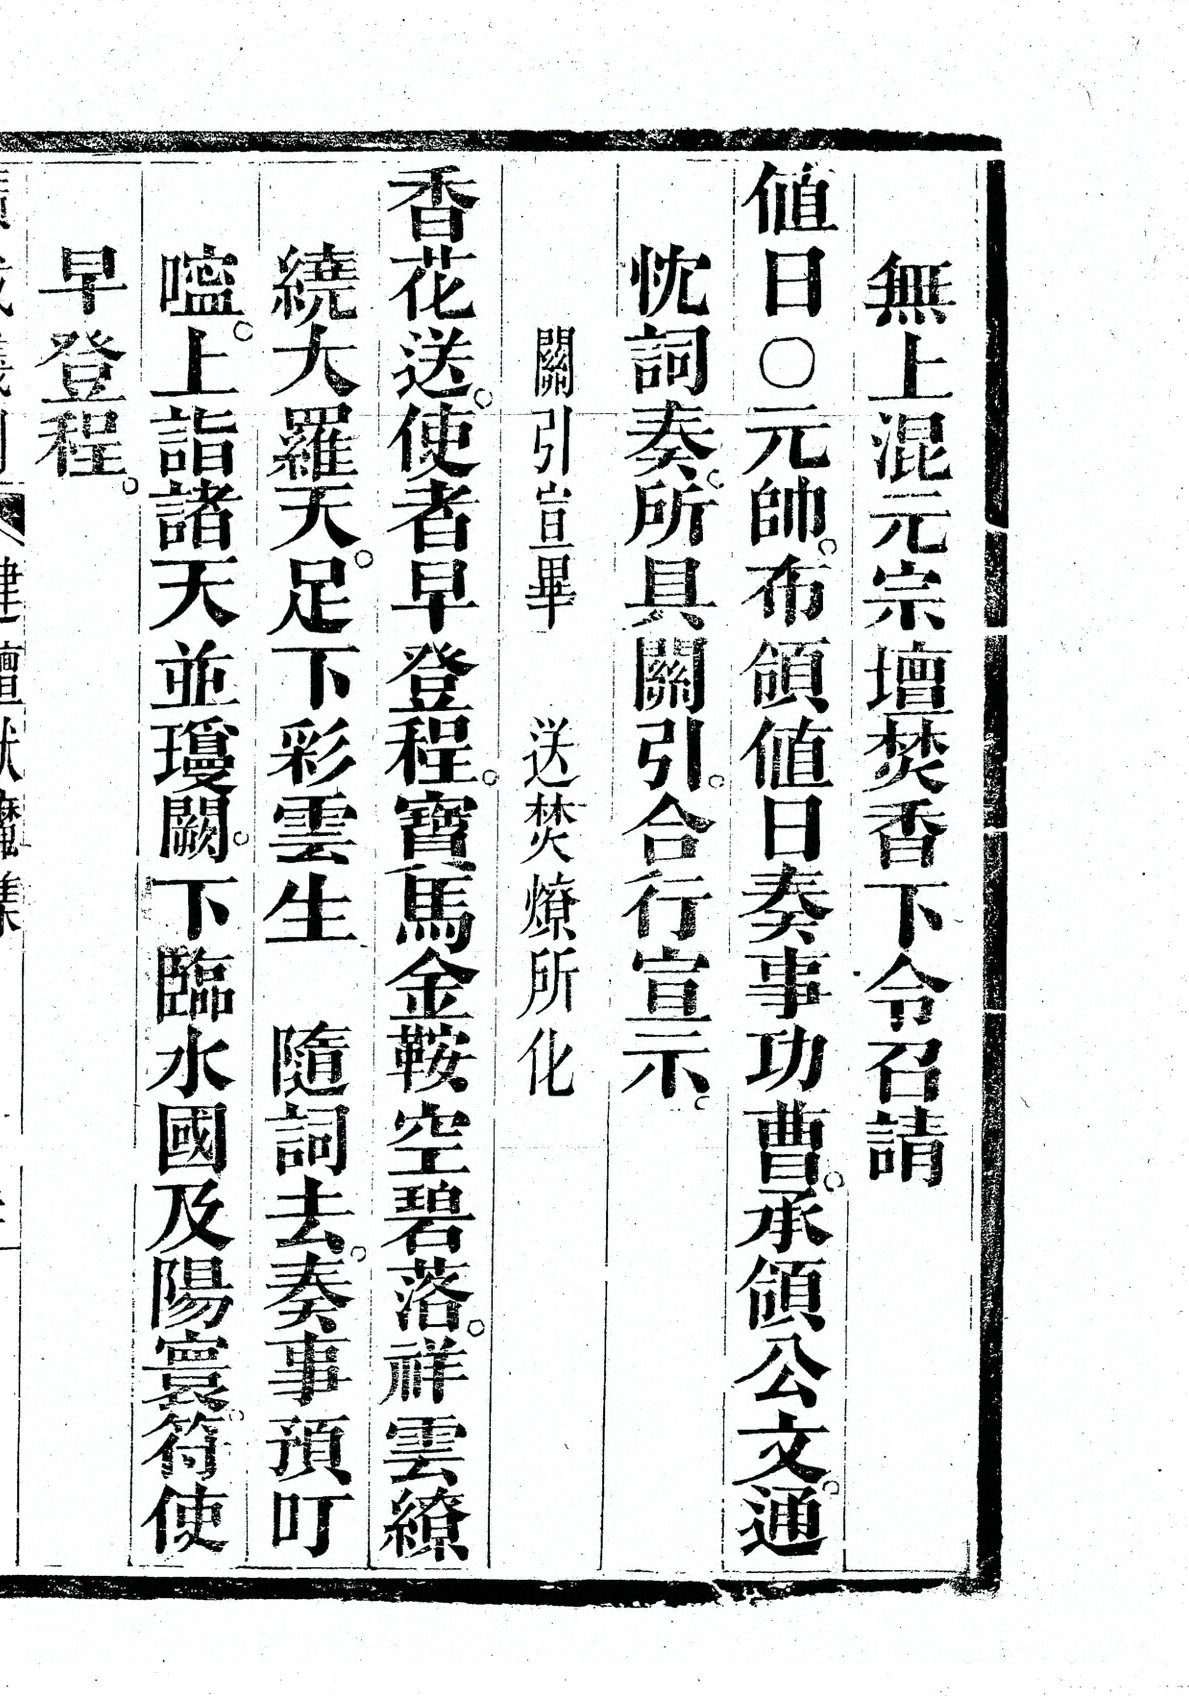 無上混元宗壇焚香下令召請
値日〇元帥。布頒値日奏事功曹。承領公文。通
忱詞奏。所具關引。合行宣示。
關引宣畢　送焚燎所化
香花送。使者早登程。寶馬金鞍空碧落。祥雲繚
繞大羅天。足下彩雲生　隨詞去。奏事預叮
嚀。上詣諸天並瓊闕。下臨水國及陽寰。符使
早登程。
建壇
集